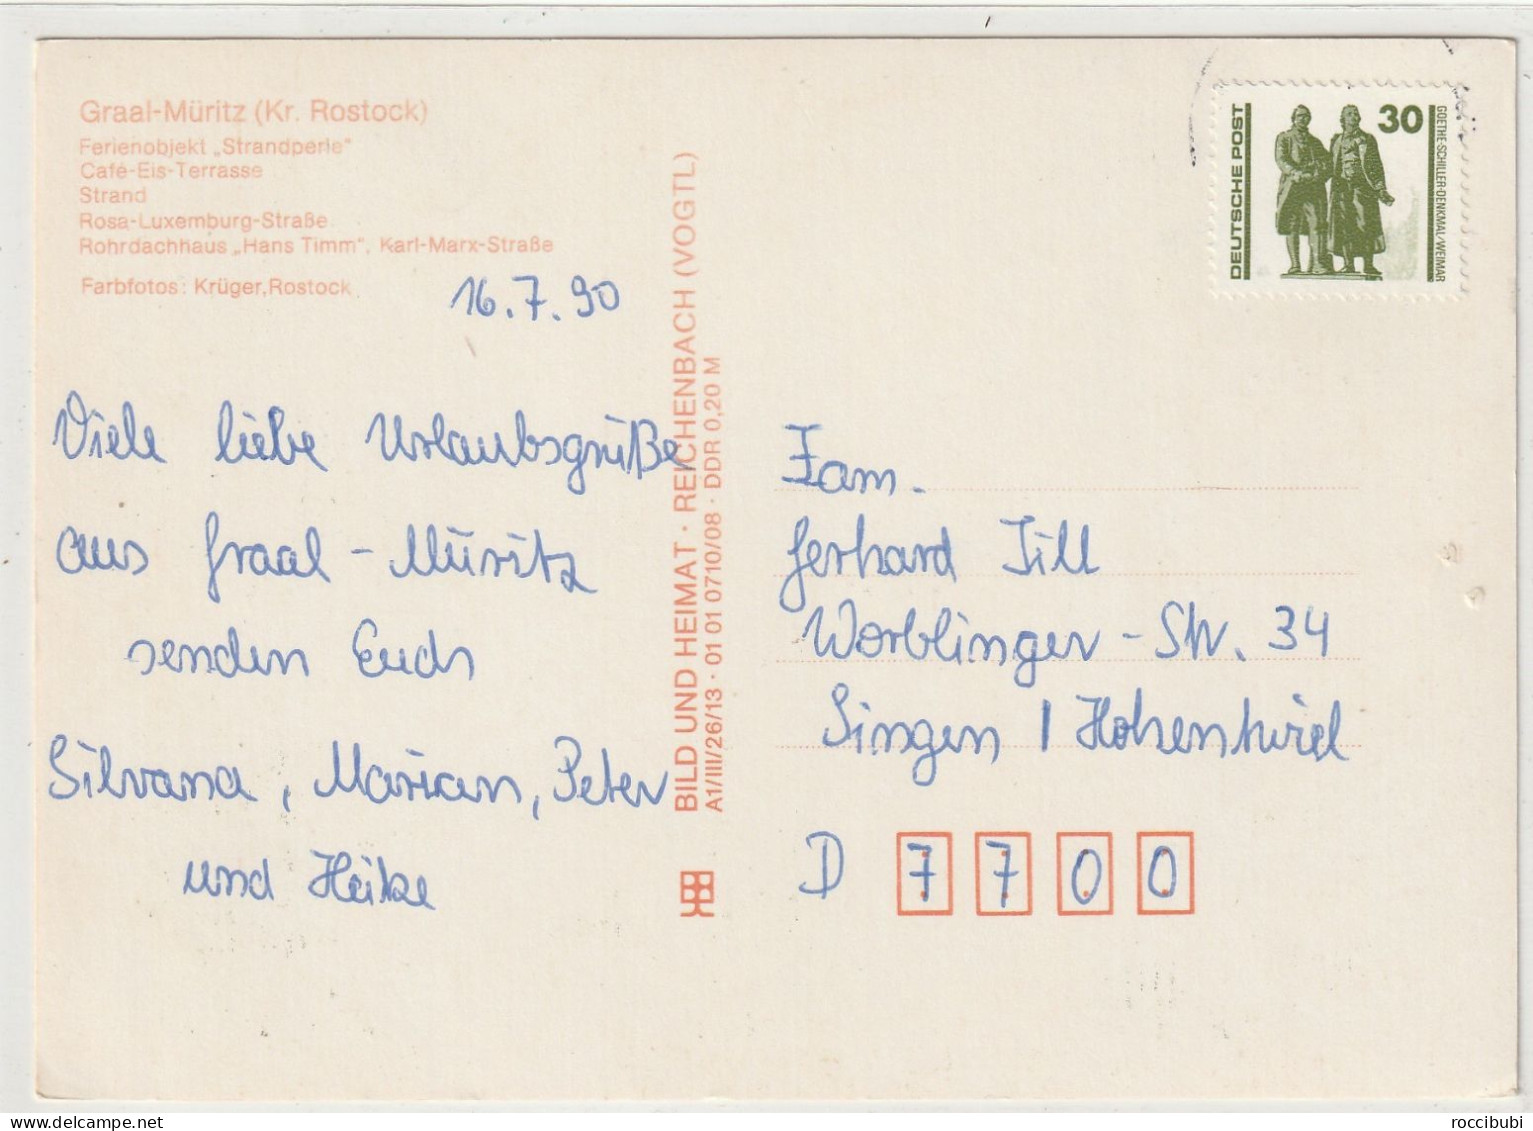 Graal-Müritz (Kr. Rostock)
Ferienobjekt „Strandperle"
Café-Eis-Terrasse
Strand
Rosa-Luxemburg-Straße
Rohrdachhaus „Hans Timm", Karl-Marx-Straße
Farbfotos: Krüger, Rostock
16.7.90
Viele liebe Urlaubsgrüße
aus Graal-Müritz
senden Euch
Silvana, Marian, Peter
und Heike
BILD UND HEIMAT · REICHENBACH (VOGTL)
A1/III/26/13 · 01 01 0710/08 · DDR 0,20 M
DEUTSCHE POST
30
GOETHE-SCHILLER-DENKMAL/WEIMAR
Fam.
Gerhard Till
Worblinger-Str. 34
Singen / Hohentwiel
D 7700
roccibubi